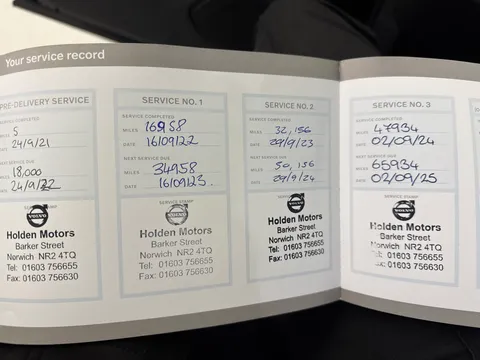 Your service record
PRE-DELIVERY SERVICE
MILES 5
DATE 24/9/21
SERVICE DUE
MILES 18,000
DATE 24/9/22
VOLVO
Holden Motors
Barker Street
Norwich NR2 4TQ
Tel: 01603 756655
Fax: 01603 756630
SERVICE NO. 1
SERVICE COMPLETED
MILES 16958
DATE 16/09/22
NEXT SERVICE DUE
MILES 34958
DATE 16/09/23.
SERVICE STAMP
VOLVO
Holden Motors
Barker Street
Norwich NR2 4TQ
Tel: 01603 756655
Fax: 01603 756630
SERVICE NO. 2
SERVICE COMPLETED
MILES 32,156
DATE 29/9/23
NEXT SERVICE DUE
MILES 50,156
DATE 29/9/24
SERVICE STAMP
VOLVO
Holden Motors
Barker Street
Norwich NR2 4TQ
Tel: 01603 756655
Fax: 01603 756630
SERVICE NO. 3
SERVICE COMPLETED
MILES 47934
DATE 02/09/24
NEXT SERVICE DUE
MILES 65934
DATE 02/09/25
SERVICE STAMP
VOLVO
Holden Motors
Barker Street
Norwich NR2 4TQ
Tel: 01603 756655
Fax: 01603 756630